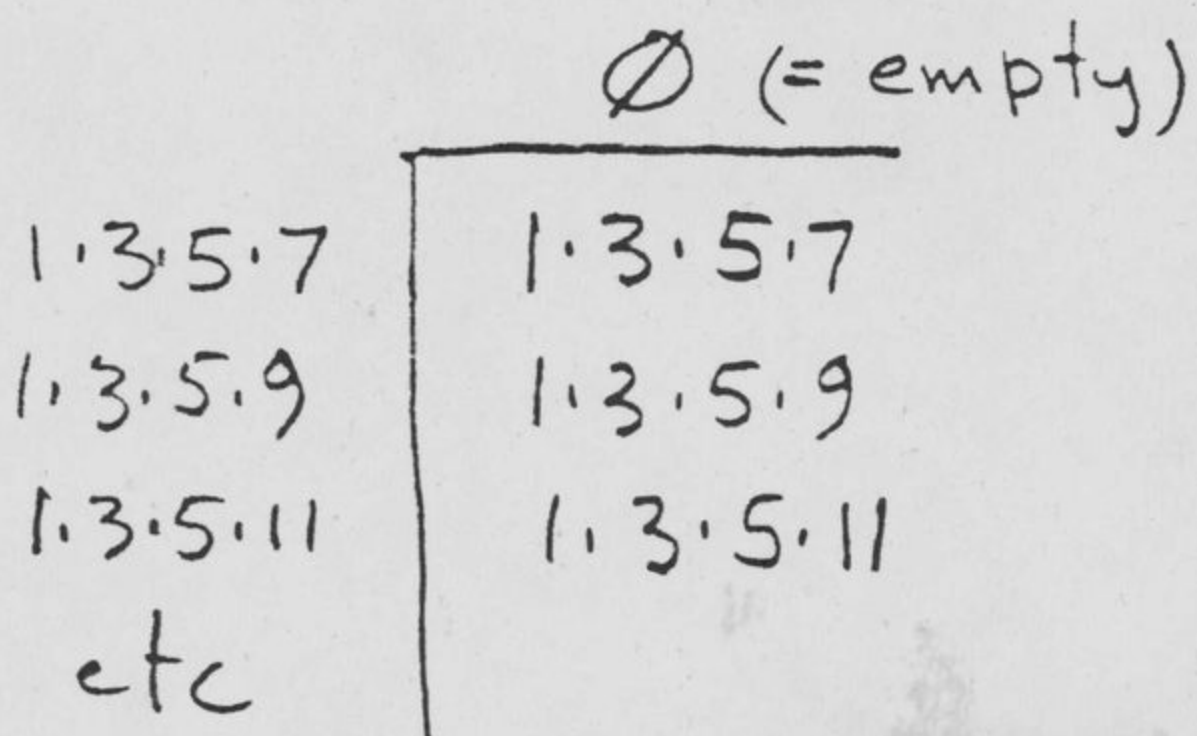 Ø (= empty)
1·3·5·7 1·3·5·7
1·3·5·9 1·3·5·9
1·3·5·11 1·3·5·11
etc